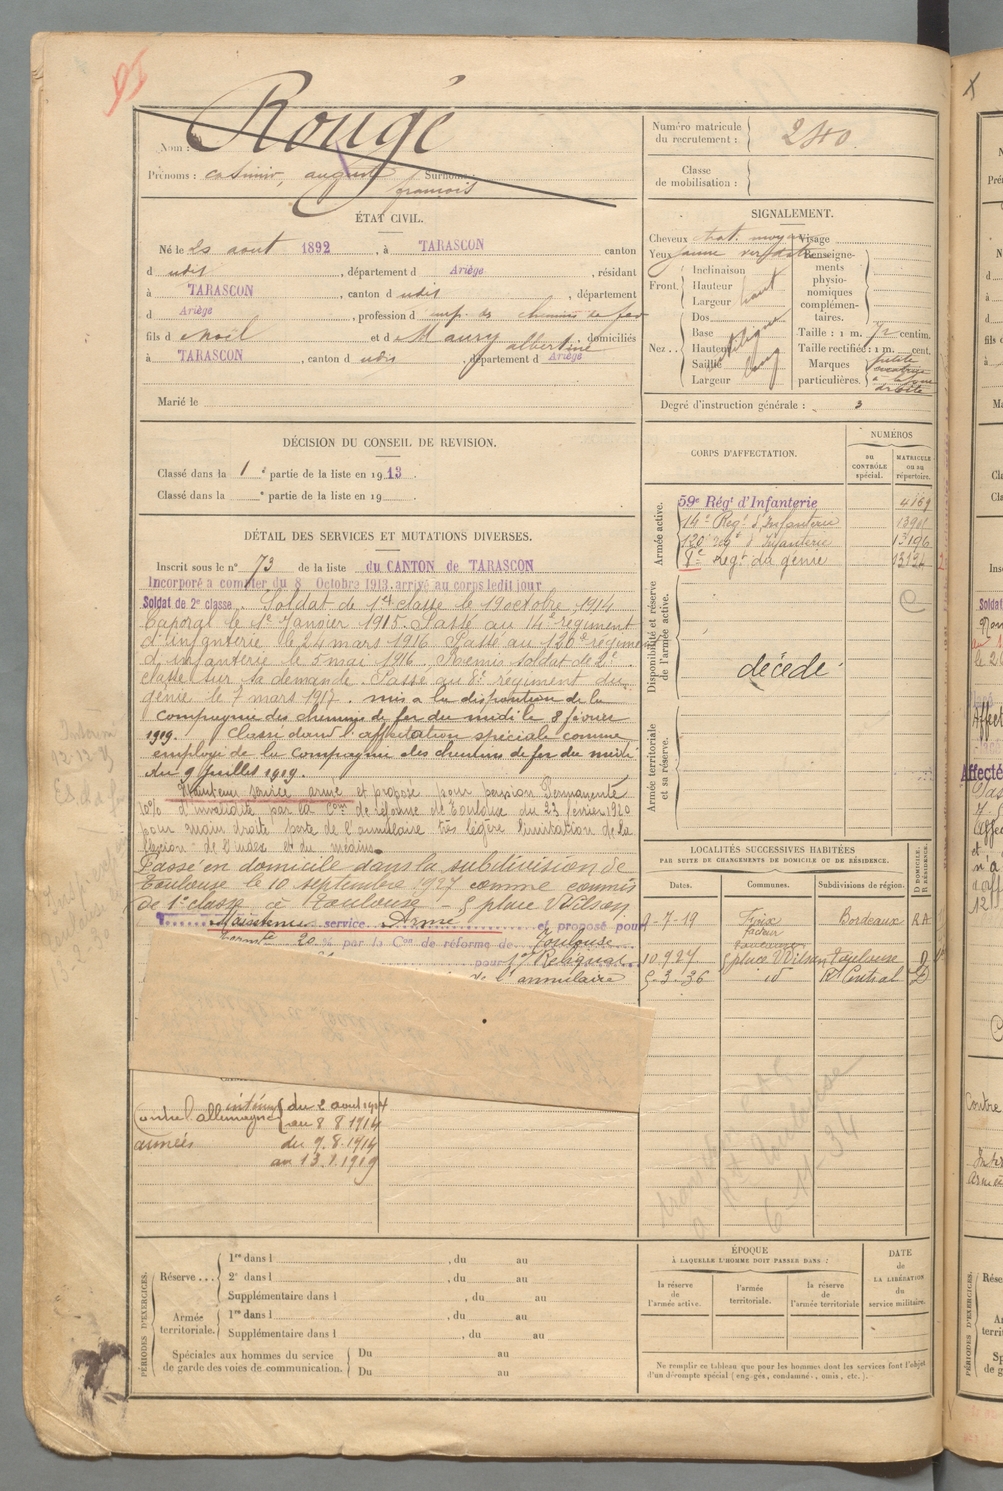 Nom : Rougé
Prénoms : Casimir, august Surnoms :
françois
ÉTAT CIVIL.
Né le 20 aout 1892, à TARASCON canton
d udit, département d Ariège, résidant
à TARASCON, canton d udit, département
d Ariège, profession d emp. de chemins de fer
fils d Noël et d Maury albertine, domiciliés
à TARASCON, canton d udit, département d Ariège
Marié le
DÉCISION DU CONSEIL DE REVISION.
Classé dans la 1e partie de la liste en 1913.
Classé dans la e partie de la liste en 19 .
DÉTAIL DES SERVICES ET MUTATIONS DIVERSES.
Inscrit sous le n° 73 de la liste du CANTON de TARASCON
Incorporé à compter du 8 Octobre 1913. arrivé au corps ledit jour
Soldat de 2e classe. Soldat de 1e classe le 19 octobre 1914
Caporal le 1e Janvier 1915. Passé au 14e régiment
d'infanterie le 24 mars 1916 Passé au 120e régiment
d'infanterie le 5 mai 1916. Remis soldat de 2e
classe sur sa demande. Passé au 8e régiment du
génie le 7 mars 1917. mis à la disposition de la
Compagnie des chemins de fer du midi le 8 février
1919. Classé dans l'affectation spéciale comme
employé de la Compagnie des chemins de fer du midi
du 9 Juillet 1919.
Maintenu service armé et propose pour pension Permanente
10% d'invalidité par la Con de réforme de Toulouse du 23 février 1920
pour main droite perte de l'annulaire très légère limitation de la
flexion de l'index et du médius.
Passé en domicile dans la subdivision de
Toulouse le 10 septembre 1927 comme commis
de 1e classe à Toulouse - 5 place Wilson
Maintenu service Armé et proposé pour
20 % par la Con de réforme de Toulouse
pour 1° Reliquat
de l'annulaire
Contre l'allemagne intérieur du 2 aout 1914
au 8 8 1914
armées du 9.8.1914
au 13.1.1919
PÉRIODES D'EXERCICES.
Réserve ... 1re dans l , du au
2e dans l , du au
Supplémentaire dans l , du au
Armée territoriale. 1re dans l , du au
Supplémentaire dans l , du au
Spéciales aux hommes du service Du au
de garde des voies de communication. Du au
Numéro matricule
du recrutement :
Classe
de mobilisation :
SIGNALEMENT.
Cheveux chat. moyen Visage
Yeux jaune verdatre
Renseignements
physionomiques
complémentaires.
Front. Inclinaison
Hauteur
Largeur haut
Nez .. Dos
Base
Hauteur
Saillie
Largeur long
Taille : 1 m. 72 centim.
Taille rectifiée : 1 m. cent.
Marques
particulières.
petite
cicatrice
à la joue
droite
Degré d'instruction générale : 3
CORPS D'AFFECTATION.
NUMÉROS
au
CONTRÔLE
spécial.
MATRICULE
ou au
répertoire.
Armée active.
59e Régt d'Infanterie 4169
14e Regt d'Infanterie
120 regt d'Infanterie 13196
8e regt du génie
Disponibilité et réserve
de l'armée active.
décédé
Armée territoriale
et sa réserve.
LOCALITÉS SUCCESSIVES HABITÉES
PAR SUITE DE CHANGEMENTS DE DOMICILE OU DE RÉSIDENCE.
Dates. Communes. Subdivisions de région. D DOMICILE. R RÉSIDENCE.
9-7-19 Foix Bordeaux R.A
10.9.27 5 place Wilson Toulouse D
5.3.36 id Rt Central D
Toulouse
6-11-34
ÉPOQUE
À LAQUELLE L'HOMME DOIT PASSER DANS :
la réserve
de
l'armée active.
l'armée
territoriale.
la réserve
de
l'armée territoriale
DATE
de
LA LIBÉRATION
du
service militaire.
Ne remplir ce tableau que pour les hommes dont les services font l'objet
d'un décompte spécial (engagés, condamnés, omis, etc.).